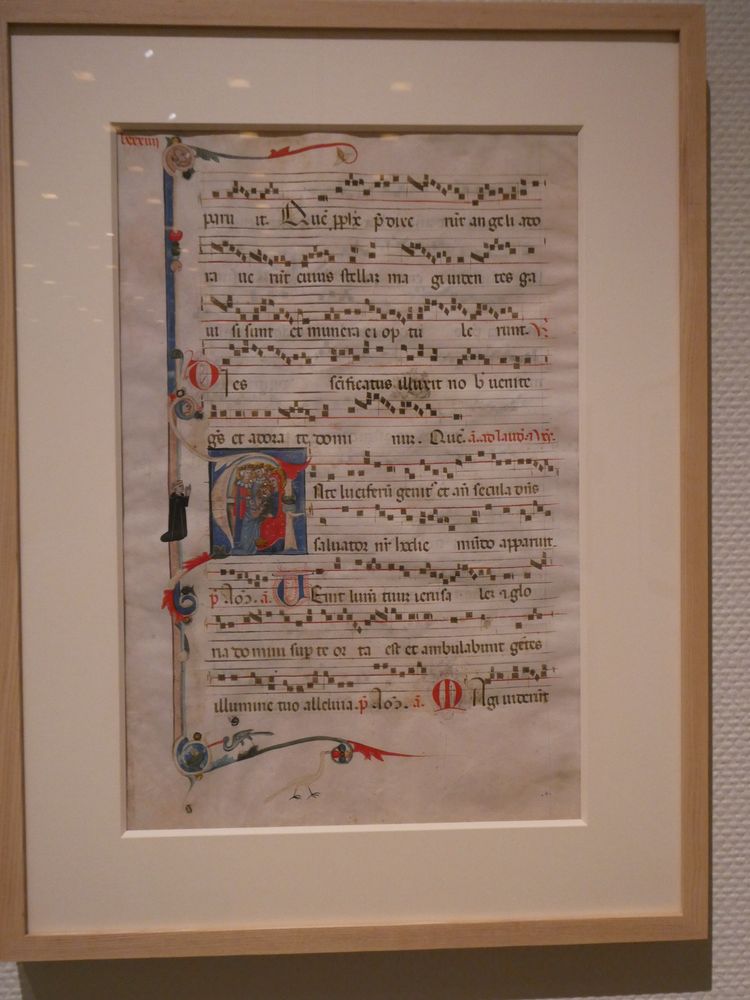 lxxxiiij
paru it. Que pplx
ra ue rūt cuius stellaz ma gi uiden tes ga
ui si sunt et munera ei op tu le runt.
Dies scificatus illuxit no b uenite
et adora te domi Que. a. ad laud.
Ante luciferū genit et an secula dns
saluator nr hodie mūdo apparuit.
p̄ a. Uenit lum tuum ierusa lem glo
ria domini sup te or ta est et ambulabunt getes
illumine tuo alleluia. p̄ a. Magi uiderūt